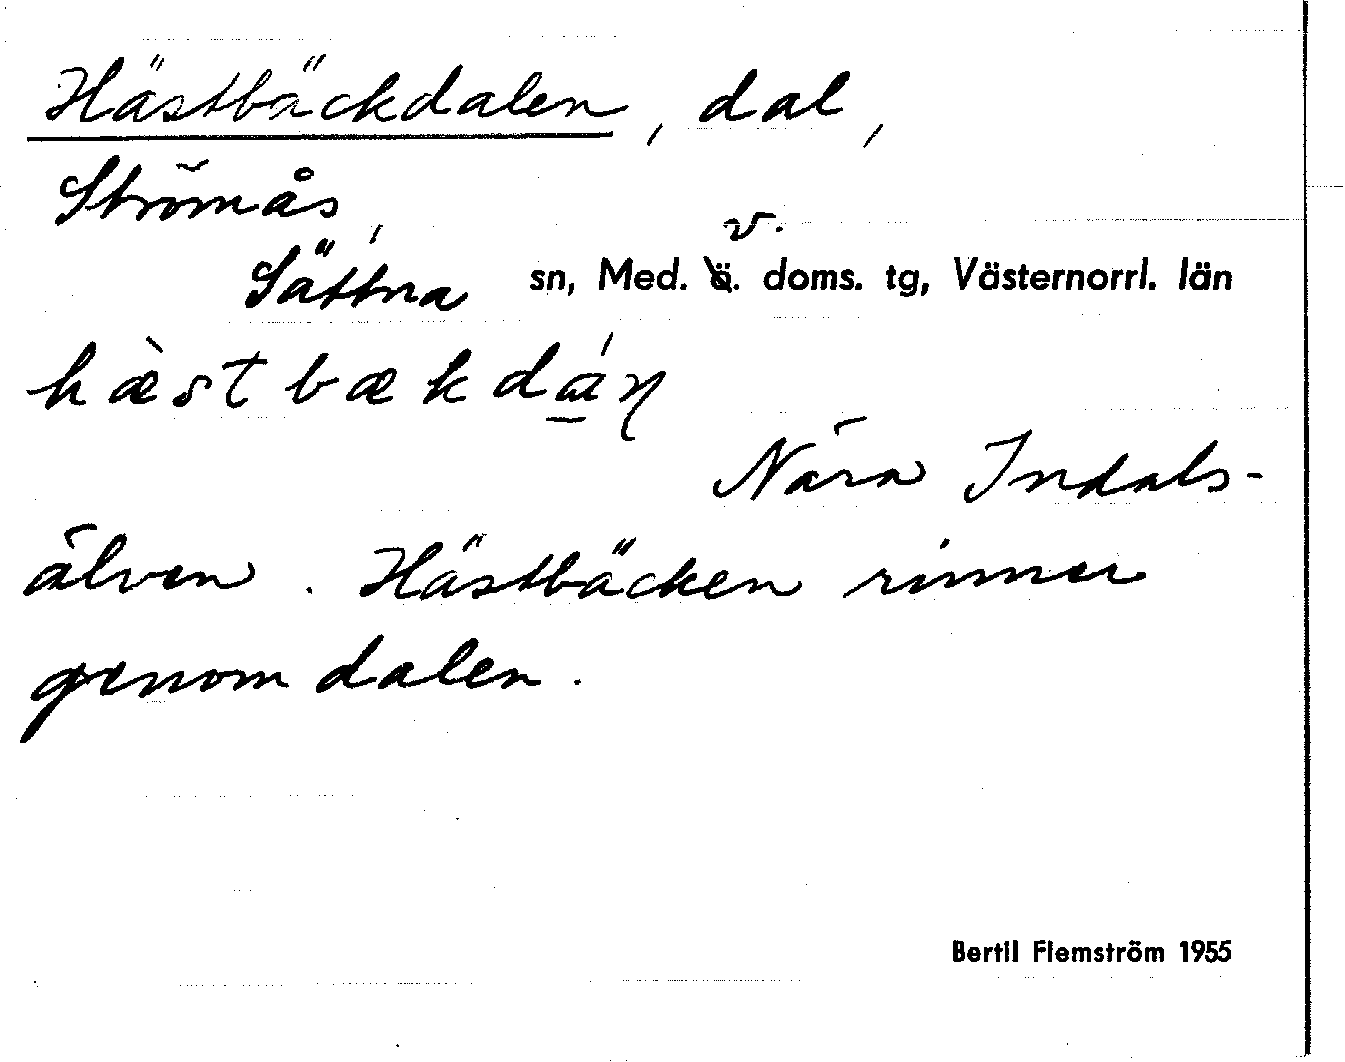 Hästbäckdalen, dal,
Strömås,
Sättna sn, Med. v. doms. tg, Västernorrl. län
hæ̀stbækdá̲ŋ
Nära Indals-
älven. Hästbäcken rinner
genom dalen.
Bertil Flemström 1955